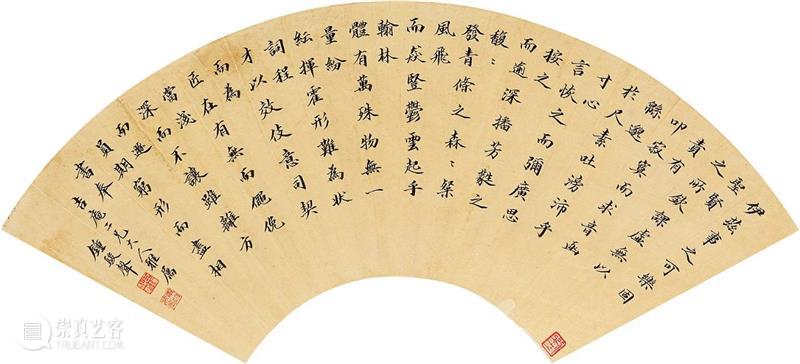 伊茲事之可樂固
聖賢
之所欽課虛無以
責有
叩寂寞而求音函
緜邈
於尺素吐滂沛乎
寸心
言恢之而彌廣思
按之
而逾深播芳蕤之
馥〻
發青條之森〻粲
風飛
而猋豎鬱雲起乎
翰林
體有萬殊物無一
量紛
紜揮霍形難為狀
詞程
才以效伎意司契
而為
匠在有無而僶俛
當淺
深而不讓雖離方
而遯
員期窮形而盡相
書奉
吉庵二兄大人雅屬
鍾駿聲
崇真艺客